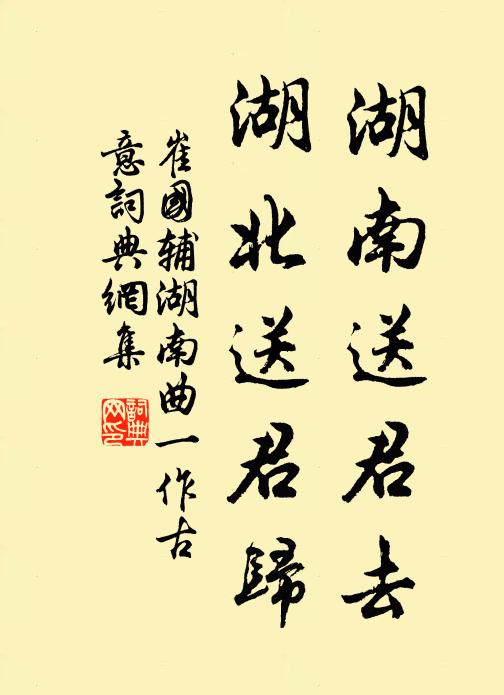 湖南送君去
湖北送君歸
崔國輔湖南曲一作古
意詞典網集
詞典网印